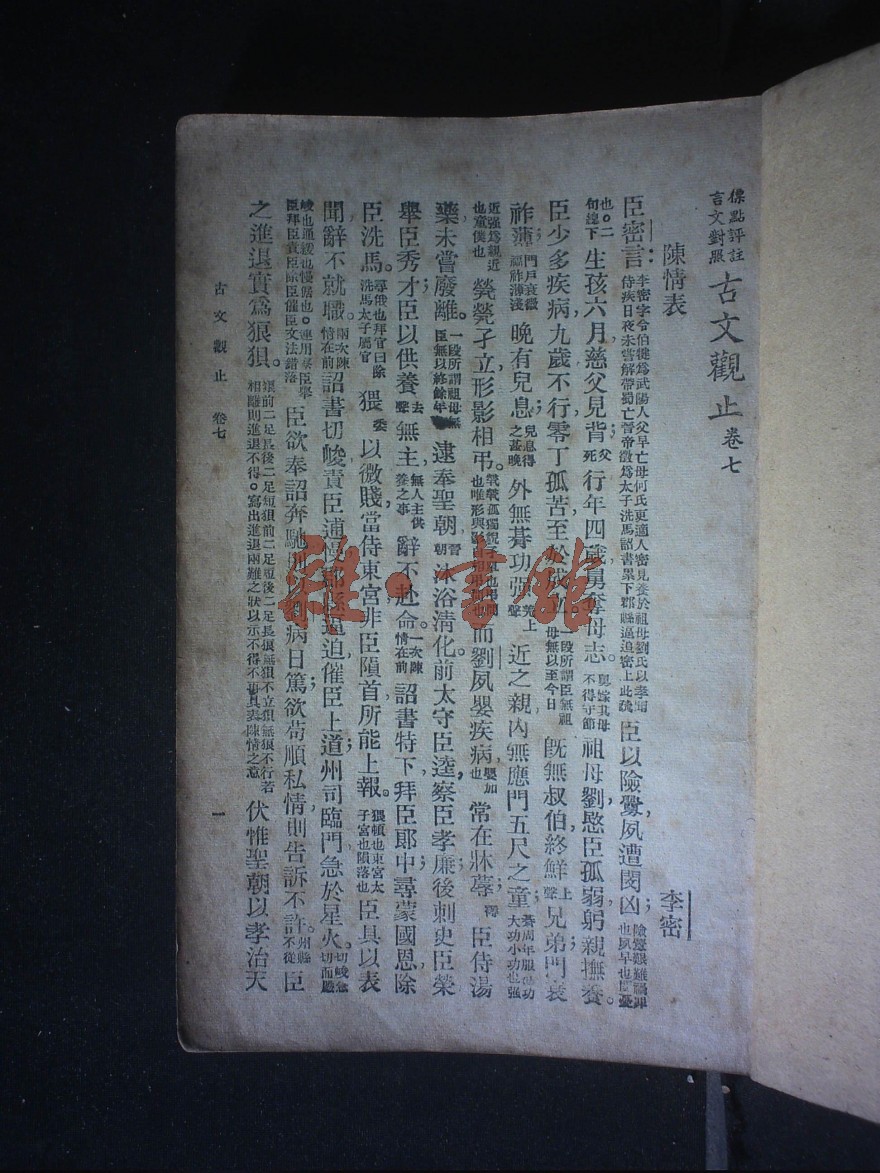 標點評註
言文對照
古文觀止 卷七
陳情表
李密
臣密言：李密字令伯犍為武陽人父早亡母何氏更適人密見養於祖母劉氏以孝聞
侍疾日夜未嘗解帶蜀亡晉帝徵為太子洗馬詔書累下郡縣逼迫密上此疏 臣以險釁夙遭閔凶；險釁艱難禍罪
也夙早也閔憂
也。○二
句總下 生孩六月慈父見背父
死 行年四歲舅奪母志。舅嫁其母
不得守節 祖母劉愍臣孤弱躬親撫養。
臣少多疾病九歲不行零丁孤苦至於成立。一段所謂臣無祖
母無以至今日 既無叔伯終鮮上
聲 兄弟門衰
祚薄；門戶衰微
福祚薄淺 晚有兒息；兒息得
之甚晚 外無朞功强上
聲 近之親內無應門五尺之童；朞周年服也功
大功小功也强
近强為親近
也童僕也 煢煢孑立，形影相弔。
也唯形與影 而劉夙嬰疾病，嬰加
也 常在牀蓐；褥 臣侍湯
藥未嘗廢離。一段所謂祖母無
臣無以終餘年 逮奉聖朝晉
朝 沐浴清化。前太守臣逵，察臣孝廉；後刺史臣榮
舉臣秀才臣以供養去
聲 無主無人主供
養之事 辭不赴命。一次陳
情在前 詔書特下拜臣郎中尋蒙國恩除
臣洗馬。尋俄也拜官曰除
洗馬太子屬官 猥委 以微賤當侍東宮非臣隕首所能上報。猥頓也東宮太
子宮也隕落也 臣具以表
聞辭不就職。兩次陳
情在前 詔書切峻責臣逋慢；郡縣逼迫催臣上道；州司臨門急於星火。切峻急
切而嚴
峻也逋緩也慢倨也。連用察臣舉
臣拜臣責臣除臣催臣文法錯落 臣欲奉詔奔馳則劉病日篤；欲苟順私情，則告訴不許。州縣
不從 臣
之進退實為狼狽。狼前二足長後二足短狽前二足短後二足長狼無狽不立狽無狼不行若
相離則進退不得。寫出進退兩難之狀以示不得不再具表陳情之意 伏惟聖朝以孝治天
古文觀止 卷七
一
雜·書館